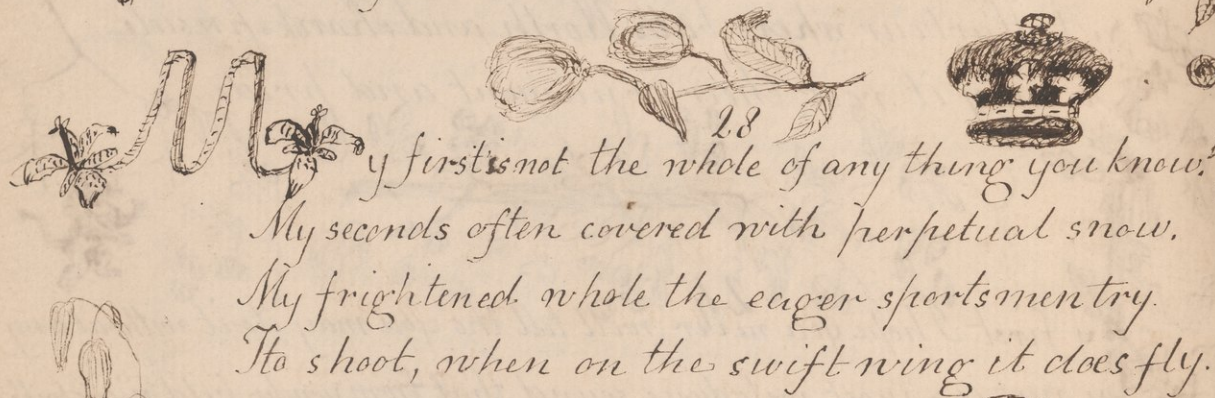 28
My first is not the whole of any thing you know.
My seconds often covered with perpetual snow.
My frightened whole the eager sportsmen try.
To shoot, when on the swift wing it does fly.